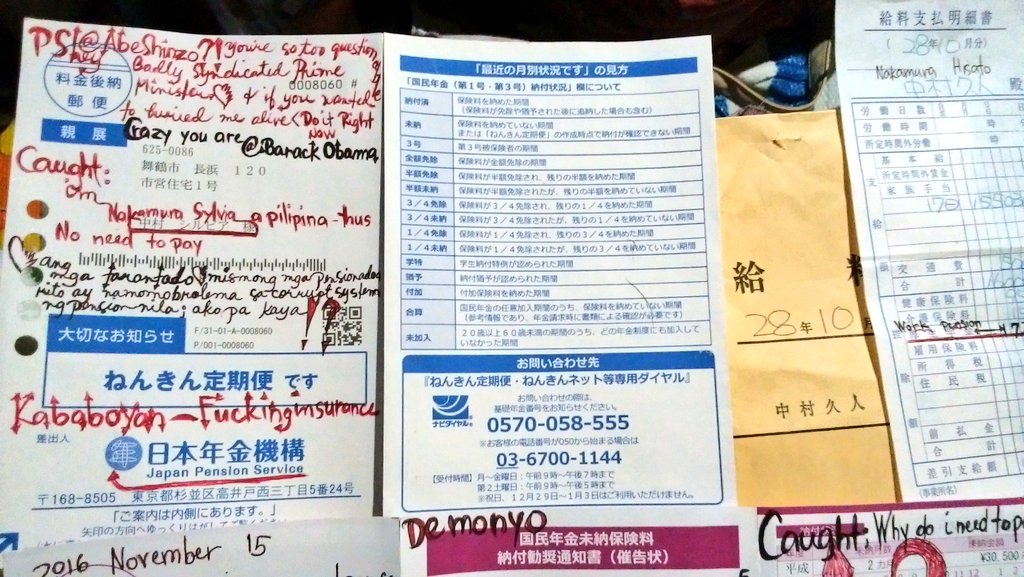 PS/@AbeShinzo?! you're so too question
Badly Syndicated Prime
Minister & if you wanted
to buried me alive Do it Right
now
Crazy you are @Barack Obama
料金後納
郵便
0008060 #
親展
625-0086
舞鶴市 長浜 120
市営住宅1号
Caught:
i'm
Nakamura Sylvia a pilipina-thus
中村 シルビア 様
No need to pay
ang
mga tarantado mismong mga pensionado
rito ay namomobrolema sa corrupt system
ng pension nila; ako pa kaya
大切なお知らせ
F/31-01-A-0008060
P/001-0008060
ねんきん定期便 です
Kababoyan - Fucking insurance
差出人
日本年金機構
Japan Pension Service
〒168-8505 東京都杉並区高井戸西三丁目5番24号
「ご案内は内側にあります。」
矢印の方向へゆっくりはがしてご覧ください
2016 November 15
「最近の月別状況です」の見方
「国民年金(第1号・第3号)納付状況」欄について
納付済 保険料を納めた期間
(保険料が免除や猶予された後に追納した場合も含む)
未納 保険料を納めていない期間
または「ねんきん定期便」の作成時点で納付が確認できない期間
3号 第3号被保険者の期間
全額免除 保険料が全額免除の期間
半額免除 保険料が半額免除され、残りの半額を納めた期間
半額未納 保険料が半額免除されたが、残りの半額を納めていない期間
3/4免除 保険料が3/4免除され、残りの1/4を納めた期間
3/4未納 保険料が3/4免除されたが、残りの1/4を納めていない期間
1/4免除 保険料が1/4免除され、残りの3/4を納めた期間
1/4未納 保険料が1/4免除されたが、残りの3/4を納めていない期間
学特 学生納付特例が認められた期間
猶予 納付猶予が認められた期間
付加 付加保険料を納めた期間
合算 国民年金の任意加入期間のうち、保険料を納めていない期間
(参考情報であり、年金請求時に書類による確認が必要です)
未加入 20歳以上60歳未満の期間のうち、どの年金制度にも加入して
いなかった期間
お問い合わせ先
『ねんきん定期便・ねんきんネット等専用ダイヤル』
ナビダイヤル
お問い合わせの際は、
基礎年金番号をお知らせください。
0570-058-555
※お客様の電話番号が050から始まる場合は
03-6700-1144
【受付時間】月~金曜日:午前9時~午後7時まで
第2土曜日:午前9時~午後5時まで
※祝日、12月29日~1月3日はご利用いただけません。
Demonyo
国民年金未納保険料
納付勧奨通知書(催告状)
給料
28年10月
中村久人
給料支払明細書
(28年10月分)
Nakamura Hisato
中村久人 殿
労働日数 日
労働時間 時
所定時間外労働 時
支給額
基本給
所定時間外賃金
家族手当
交通費
合計
控除額
健康保険料
Work pension
雇用保険料
所得税
住民税
前払金
合計
差引支給額
(事業所名)
Caught: Why do i need to p
平成
2カ月
¥30,500